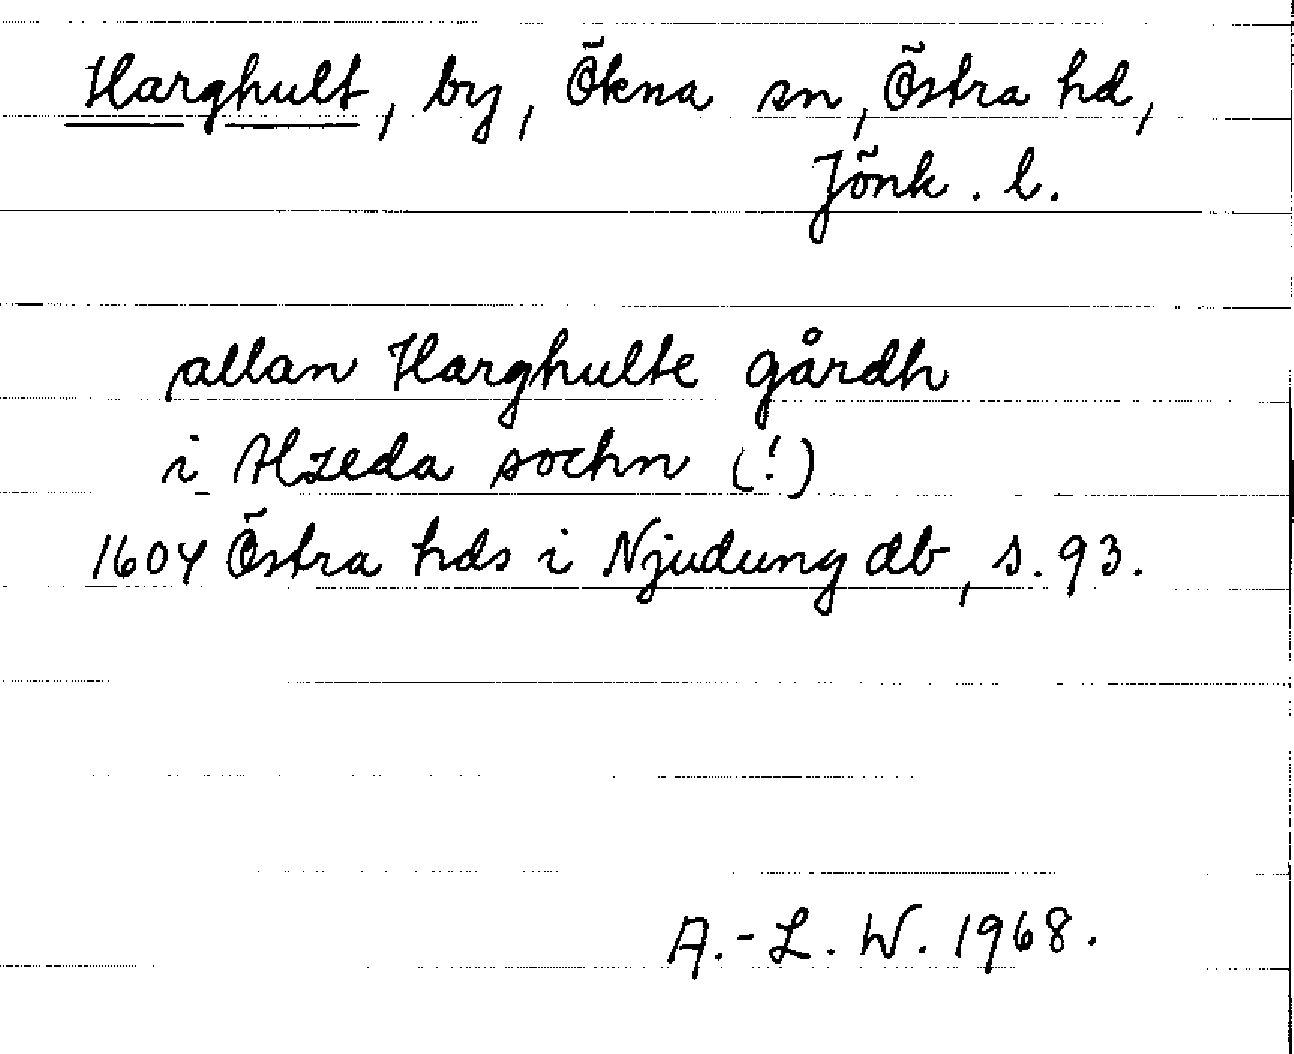 Harghult, by, Ökna sn, Östra hd,
Jönk. l.
allan Harghulte gårdh
i Alzeda sochn (!)
1604 Östra hds i Njudung db, s. 93.
A.-L. W. 1968.